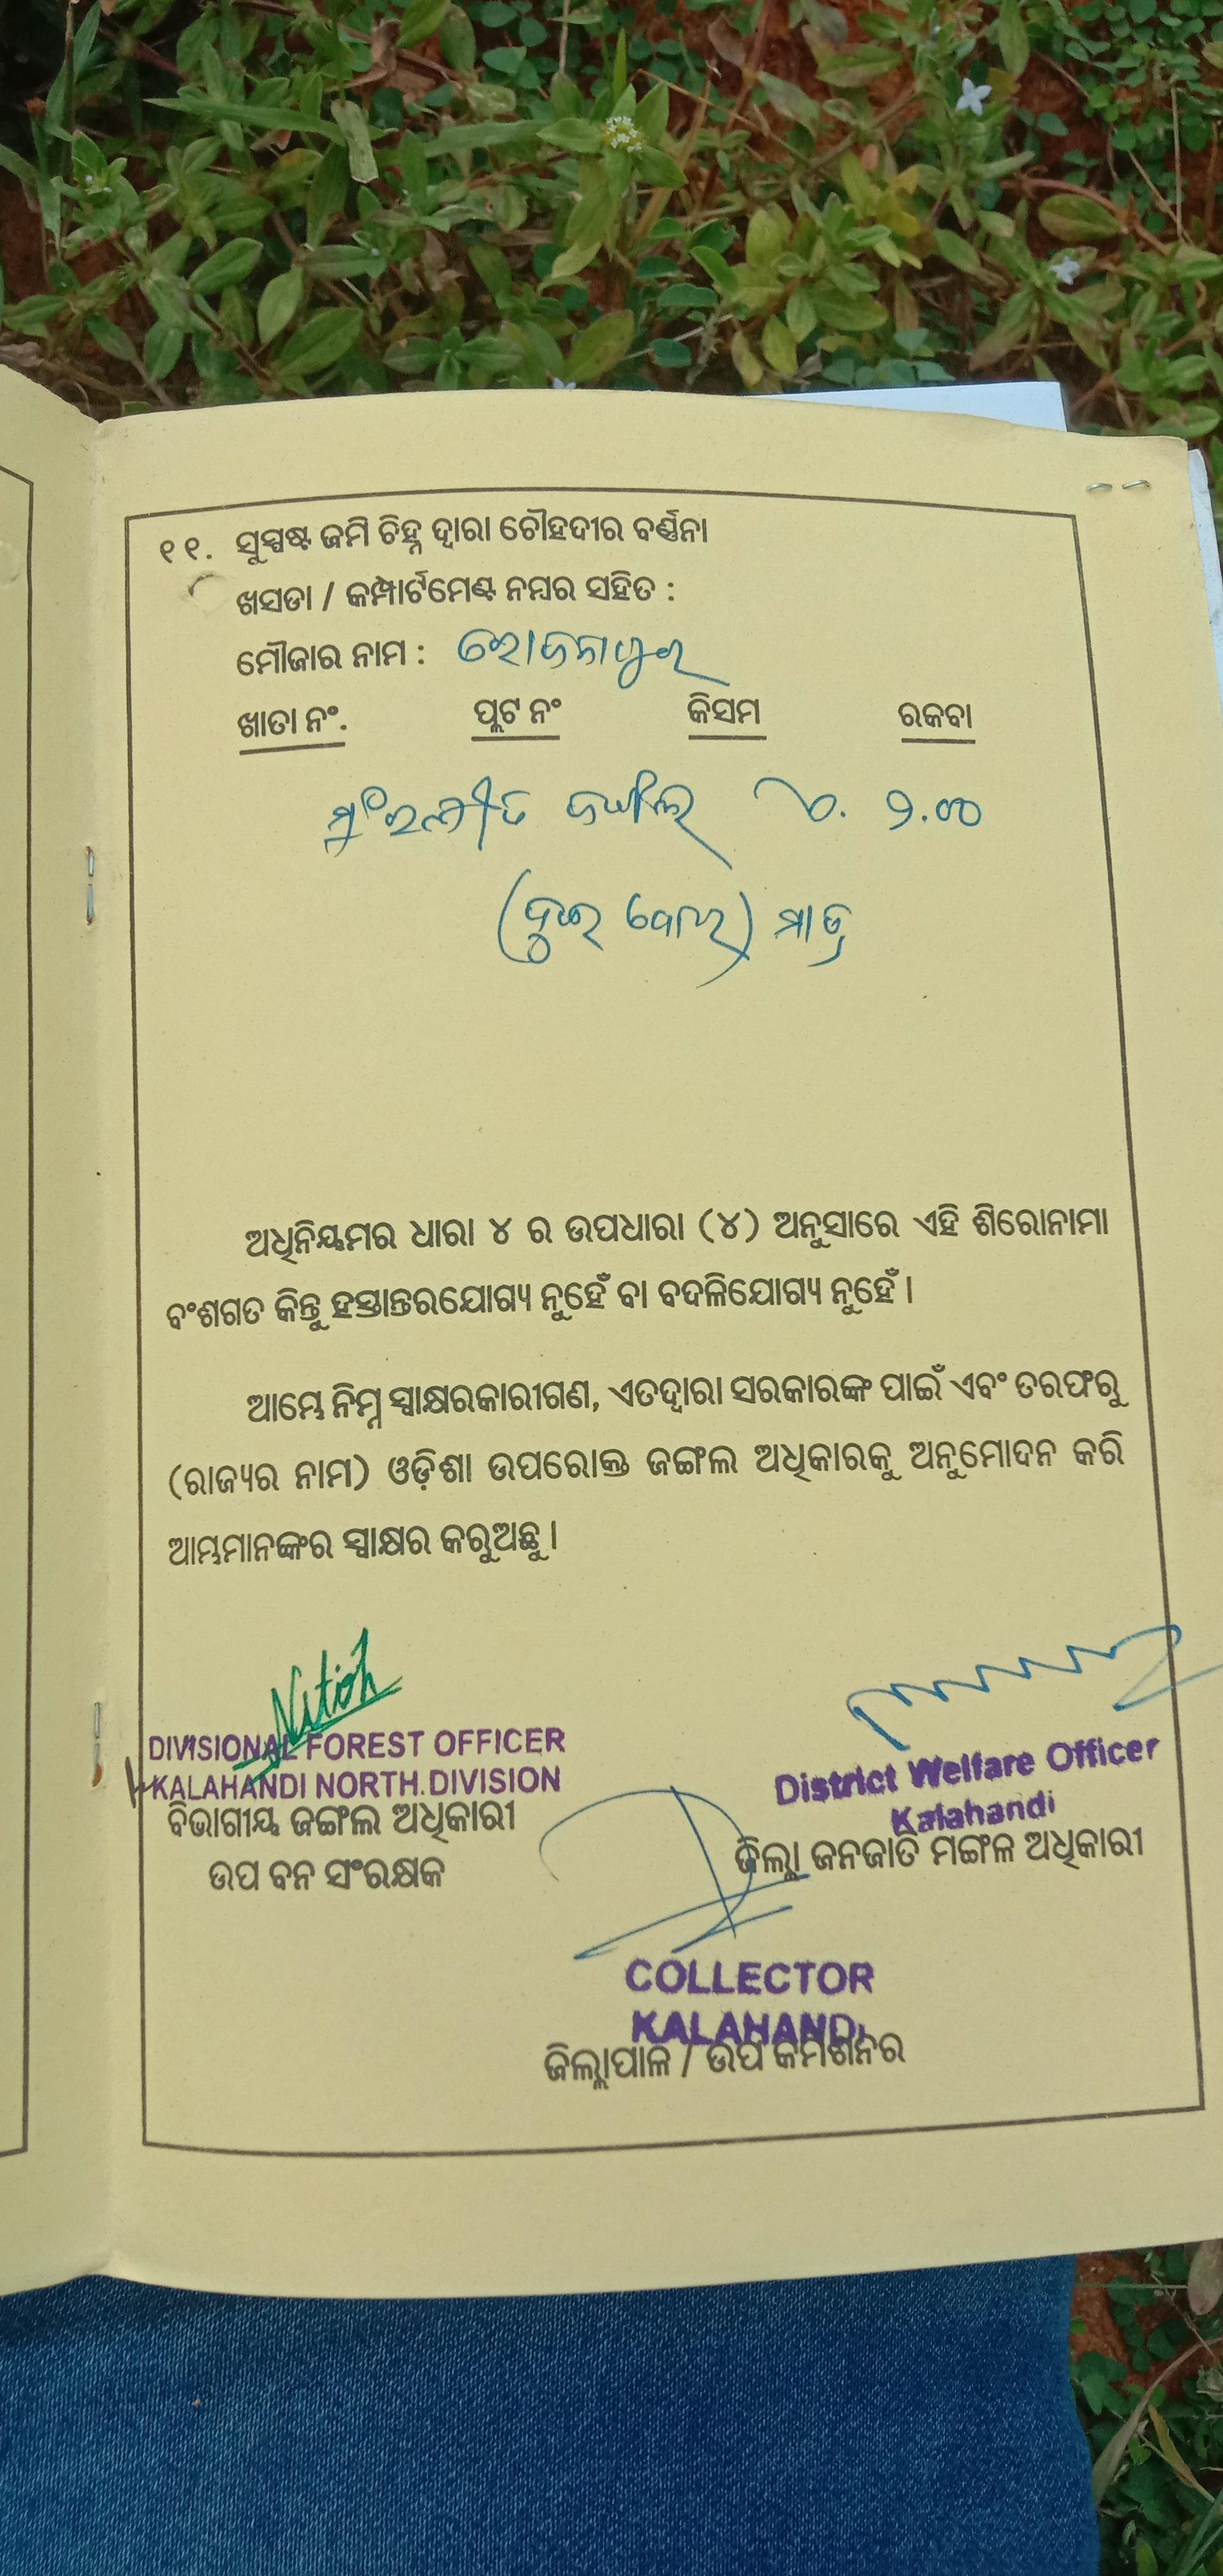 ୧୧. ସୁସ୍ପଷ୍ଟ ଜମି ଚିହ୍ନ ଦ୍ୱାରା ଚୌହଦୀର ବର୍ଣ୍ଣନା
ଖସଡା / କମ୍ପାର୍ଟମେଣ୍ଟ ନମ୍ବର ସହିତ :
ମୌଜାର ନାମ :
ଖାତା ନଂ. ପ୍ଲଟ ନଂ କିସମ ରକବା
ଜଙ୍ଗଲ ୨.୦୦
(ଦୁଇ ) ମାତ୍ର
ଅଧିନିୟମର ଧାରା ୪ ର ଉପଧାରା (୪) ଅନୁସାରେ ଏହି ଶିରୋନାମା
ବଂଶଗତ କିନ୍ତୁ ହସ୍ତାନ୍ତରଯୋଗ୍ୟ ନୁହେଁ ବା ବଦଳିଯୋଗ୍ୟ ନୁହେଁ ।
ଆମ୍ଭେ ନିମ୍ନ ସ୍ୱାକ୍ଷରକାରୀଗଣ, ଏତଦ୍ୱାରା ସରକାରଙ୍କ ପାଇଁ ଏବଂ ତରଫରୁ
(ରାଜ୍ୟର ନାମ) ଓଡ଼ିଶା ଉପରୋକ୍ତ ଜଙ୍ଗଲ ଅଧିକାରକୁ ଅନୁମୋଦନ କରି
ଆମ୍ଭମାନଙ୍କର ସ୍ୱାକ୍ଷର କରୁଅଛୁ ।
Nitish
DIVISIONAL FOREST OFFICER
KALAHANDI NORTH DIVISION
ବିଭାଗୀୟ ଜଙ୍ଗଲ ଅଧିକାରୀ
ଉପ ବନ ସଂରକ୍ଷକ
District Welfare Officer
Kalahandi
ଜିଲ୍ଲା ଜନଜାତି ମଙ୍ଗଳ ଅଧିକାରୀ
COLLECTOR
KALAHANDI
ଜିଲ୍ଲାପାଳ / ଉପ କମିଶନର